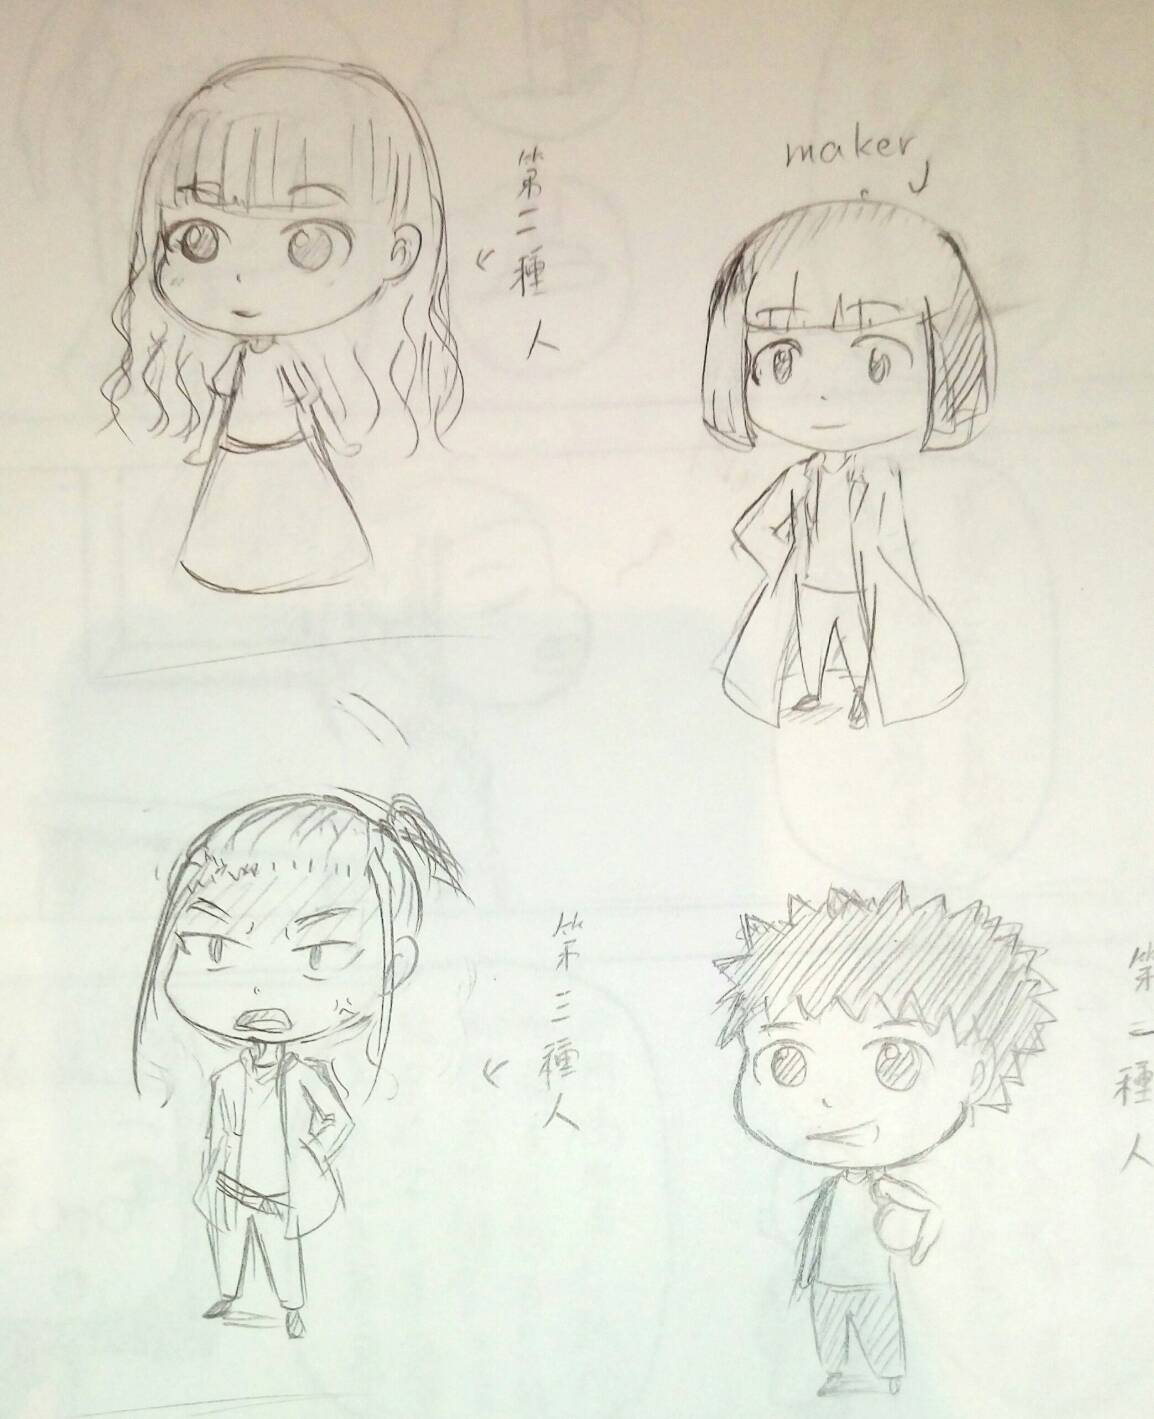 第二種人
maker
第三種人
第二種人